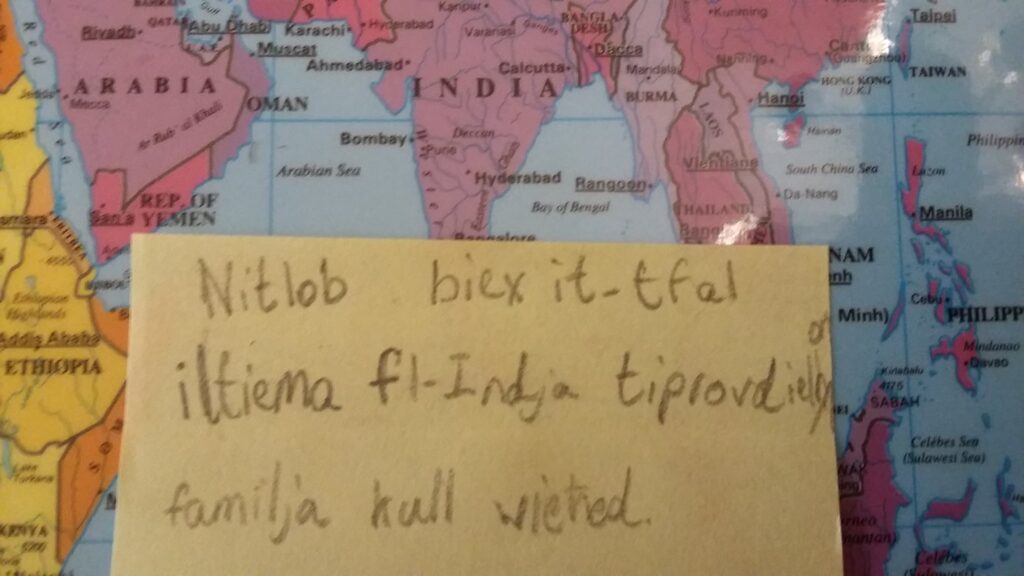 Red
QATAR
Gulf
Riyadh
Abu Dhabi
Muscat
Karachi
Hyderabad
Kanpur
Varanasi
BANGLA-
DESH
Dacca
Ahmedabad
Calcutta
Mandala
Kunming
Nanning
Taipei
TAIWAN
HONG KONG
(U.K.)
ARABIA
Mecca
OMAN
Ar Rub' al Khali
INDIA
BURMA
Hanoi
LAOS
Hainan
Sea
Bombay
Deccan
Arabian Sea
Hyderabad
Rangoon
Vientiane
South China Sea
Philippin
Luzon
REP. OF
YEMEN
San'a
Bay of Bengal
Da Nang
THAILAND
Manila
Bangalore
NAM
nh
Minh)
Cebu
PHILIPP
Mindanao
Davao
Ethiopian
Highlands
Addis Ababa
ETHIOPIA
Kinabalu
4175
SABAH
Celébes Sea
(Sulawesi Sea)
KENYA
5200
Celébes
(Sulawesi)
Nitlob biex it-tfal
iltiema fl-Indja tiprovdielhom
familja kull wieħed.